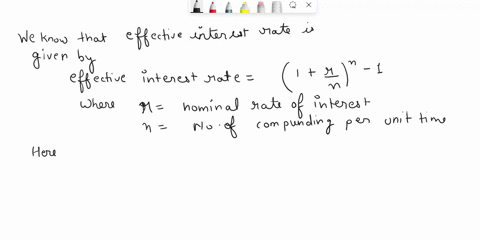 We know that effective interest rate is
given by
effective interest rate = (1 + r/n)^n - 1
where r = nominal rate of interest
n = No. of compunding per unit time
Here